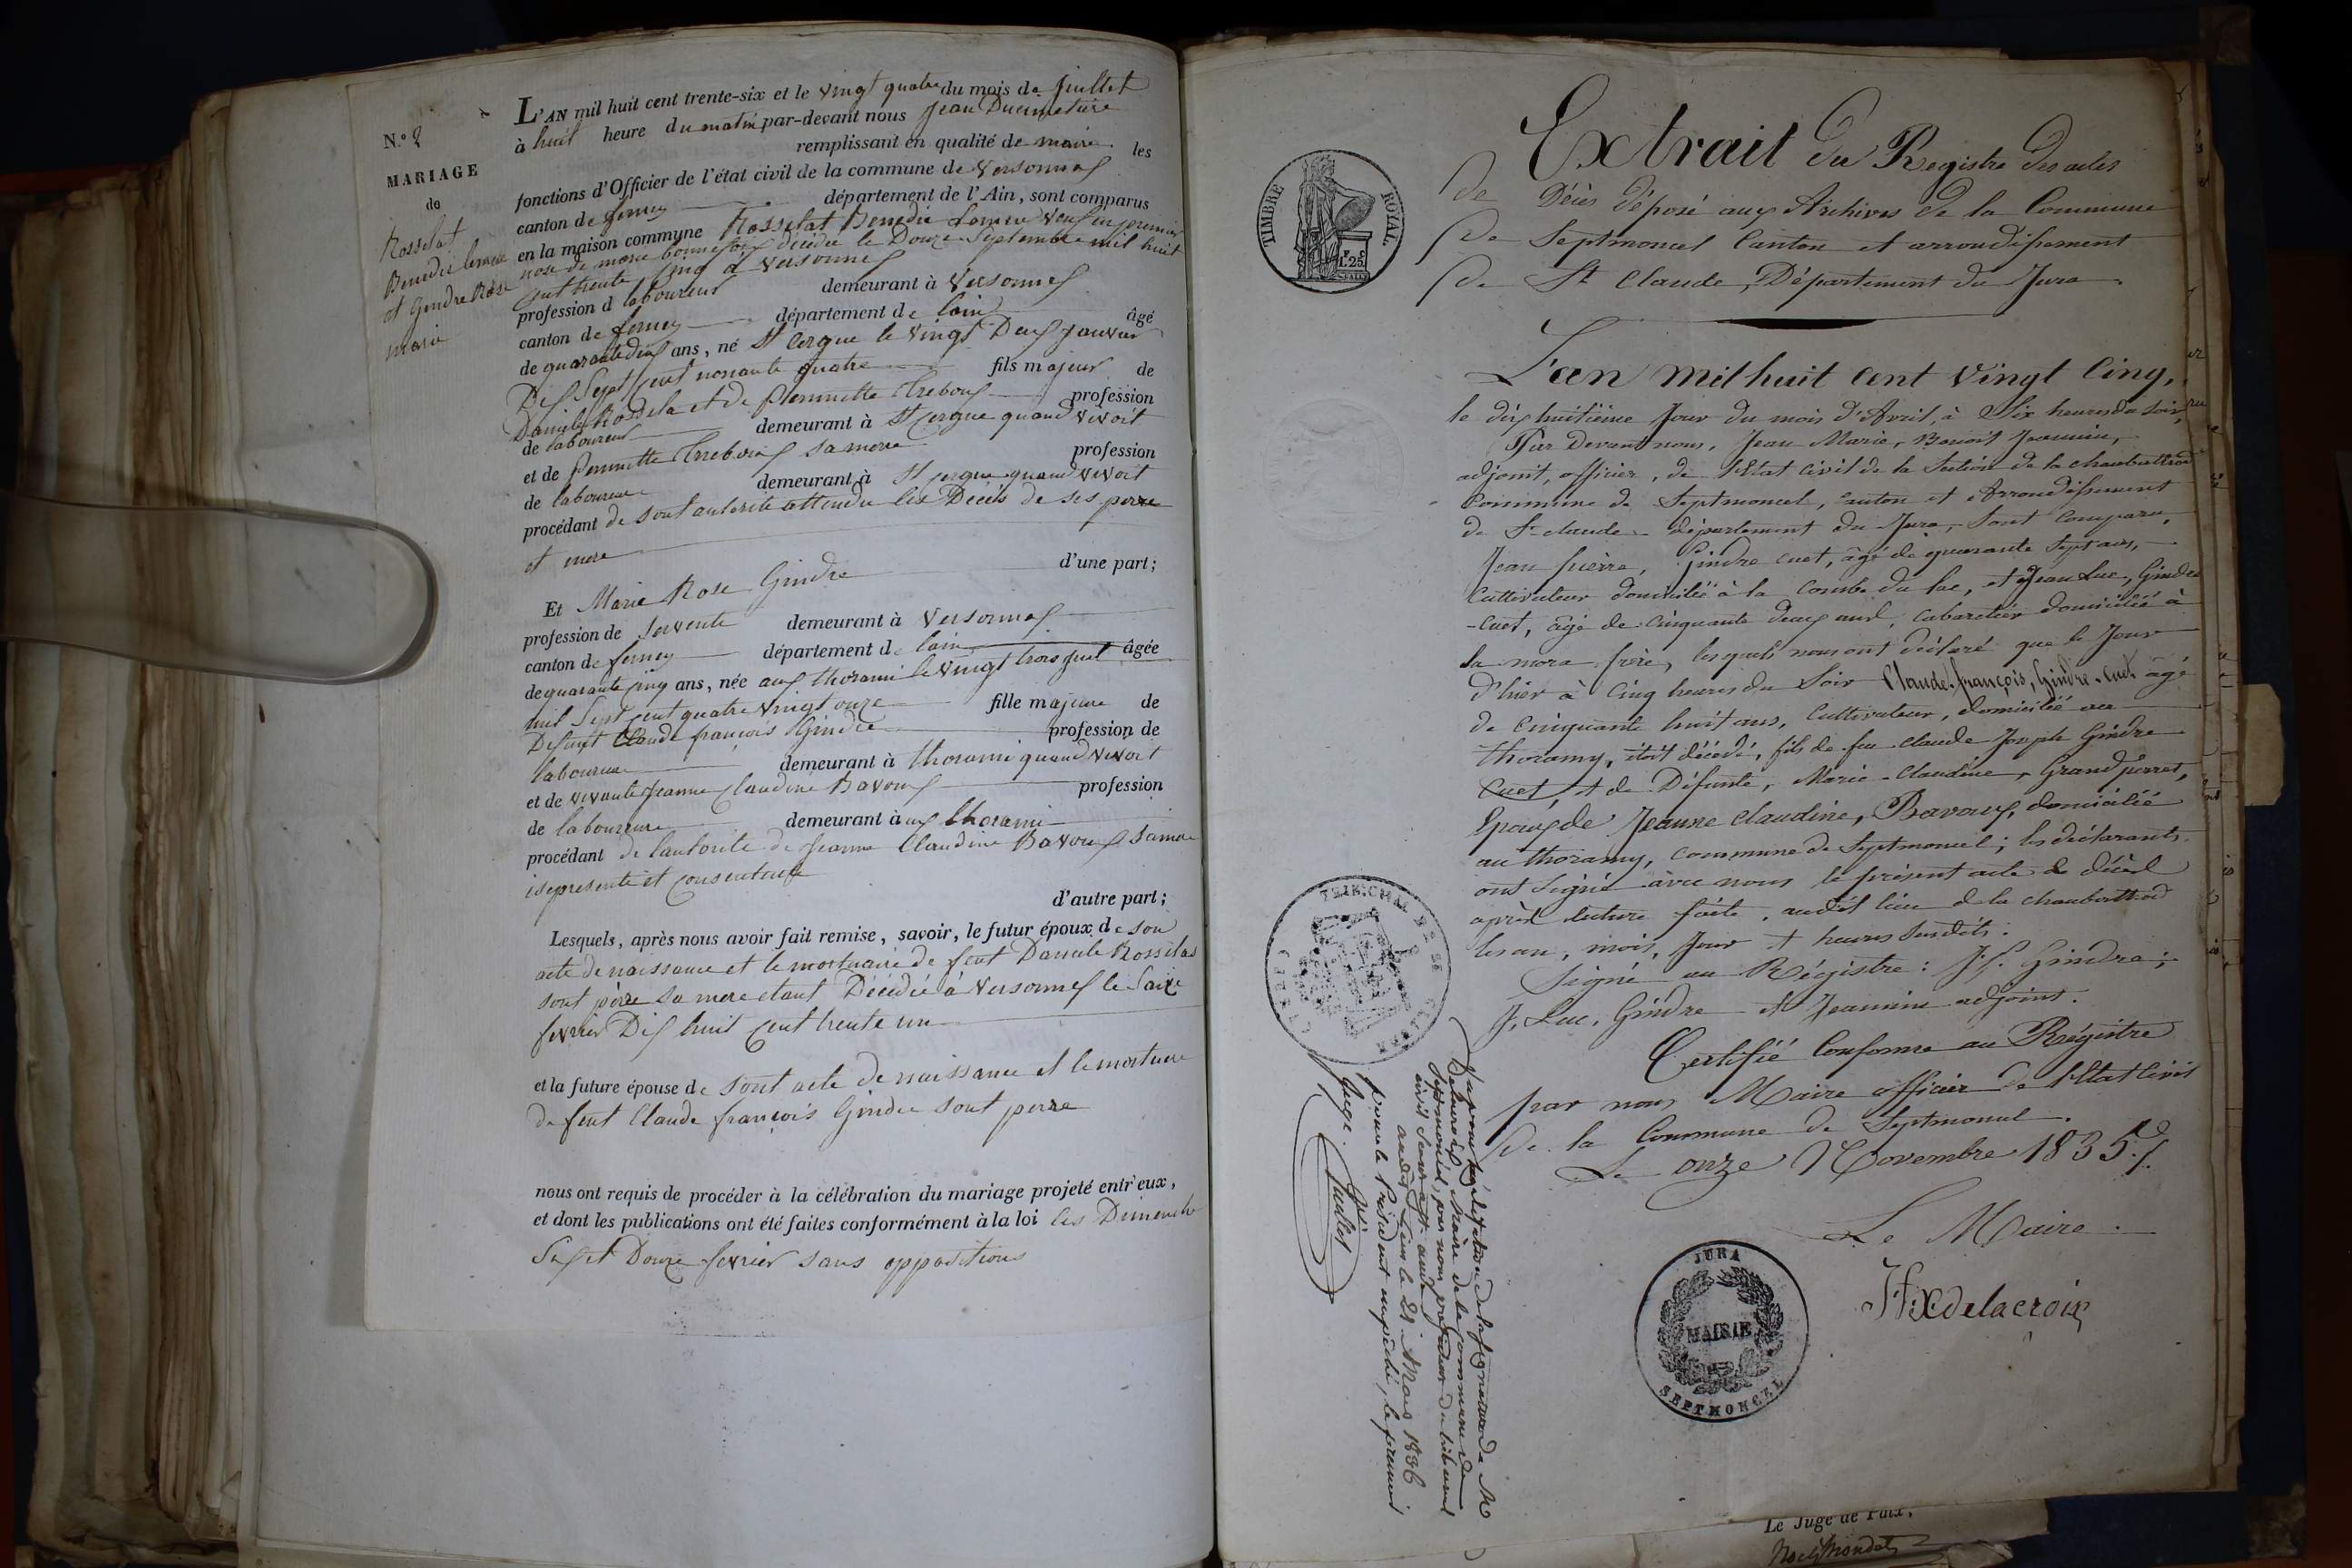 N.o 2
MARIAGE
de
Rosselat
Benedie
et Gindre Rose
marie
L'AN mil huit cent trente-six et le vingt quatre du mois de Juillet
à huit heure du matin par-devant nous Jean Ducimetière
remplissant en qualité de maire les
fonctions d'Officier de l'état civil de la commune de Versonnex
canton de ferney département de l'Ain, sont comparus
en la maison commune Rosselat Benedie veuf en premier
nose de marie décédée le Douze Septembre mil huit
cent trente cinq à Versonnex
profession d laboureur demeurant à Versonnex
canton de ferney département de lain âgé
de quarante deux ans, né St Cergue le vingt Deux Janvier
Dix Sept cent nonante quatre fils majeur de
Daniel Rosselat et de Pernnette Treboux profession
de laboureur demeurant à St Cergue quand vivoit
et de Pernnette Treboux sa mere profession
de laboureur demeurant à St Cergue quand vivoit
procédant de sont autorité attendu les Décés de ses perre
et mere
d'une part;
Et Marie Rose Gindre
profession de servente demeurant à Versonnex
canton de ferney département de lain âgée
de quarante cinq ans, née aux thorami le vingt trois
mil Sept cent quatre vingt onze fille majeure de
Defunt Claude françois Gindre profession de
laboureur demeurant à thorami quand vivoit
et de vivante Jeanne Claudine Bavoux profession
de laboureure demeurant à aux thorami
procédant de lautorité de Jeanne Claudine Bavoux sa mere
isepresente et consentente
d'autre part;
Lesquels, après nous avoir fait remise, savoir, le futur époux, de son
acte de naissance et le mortuaire de feut Daniele Rosselat
sont père sa mere etant Décédée à Versonnex le
fevrier Dix huit cent trente un
et la future épouse de sont acte de naissance et le mortuere
de feut Claude françois Gindre sont perre
nous ont requis de procéder à la célébration du mariage projeté entr'eux,
et dont les publications ont été faites conformément à la loi les Dimenche
Sept et Douze fevrier sans oppositions
TIMBRE ROYAL
1.25
Extrait du Registre des actes
De Décès déposé aux Archives de la Commune
De Septmoncel Canton et arrondissement
De St Claude, Département du Jura.
L'an mil huit cent vingt Cinq,
le dix huitième Jour du mois d'Avril, à Six heures du soir,
Par Devant nous, Jean Marie, Benoit Jeannin,
adjoint, officier, de l'Etat civil de la Section de la chaubertrod
Commune de Septmoncel, canton et Arrondissement
de St claude département du Jura, sont comparu,
Jean pièrre, Gindre cuet, âgé de quarante Sept ans,
Cultivateur domicilié à la combe du lac, et Jean Luc, Gindre
-cuet, âgé de Cinquante deux ans, cabaretier domicilié à
la mora frère, lesquels nous ont déclaré que le Jour
d'hier à Cinq heures du Soir Claude françois, Gindre-cuet âgé
de cinquante huit ans, Cultivateur, domicilié au
thoramy, étoit décédé, fils de feu Claude Joseph Gindre
Cuet, et de Défunte, Marie-Claudine, Grand perret,
Epoux de Jeanne Claudine, Bavoux, domiciliée
au thoramy, commune de Septmoncel; les déclarants
ont Signé avec nous le présent acte de décès
après lecture faite, audit lieu de la chaubertrod
les an, mois, Jour et heures Susdits.
Signé au Régistre: J.P. Gindre;
J. Luc, Gindre et Jeannin adjoint.
Certifié Conforme au Régistre
par nous Maire officier de l'Etat Civil
De la Commune de Septmoncel.
Le onze Novembre 1835./.
Le Maire.
Delacroix
JURA
MAIRIE
SEPTMONCEL
Vu pour légalisation de la signature de Mr
Delacroix Maire de la commune de
Septmoncel, par nous président du tribunal
civil séant à St Claude
audit lieu le 21 Mars 1836
pour le Président empêché, le premier
Juge.
Le Juge de Paix,